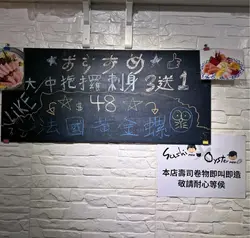 おすすめ
大/中拖羅刺身3送1
LIKE
$48
法國黃金螺
Sushi Oyster
本店壽司卷物即叫即造
敬請耐心等侯